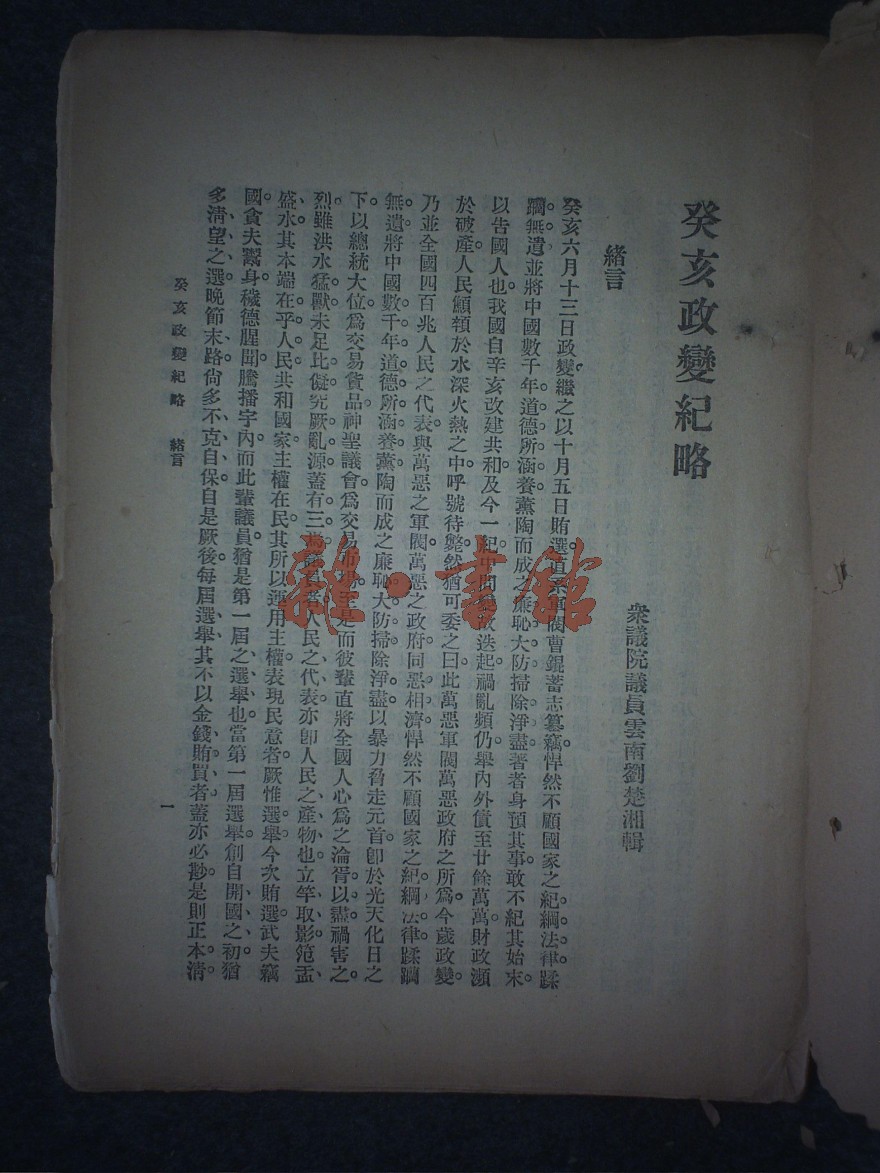 癸亥政變紀略
衆議院議員雲南劉楚湘輯
緒言
癸亥六月十三日政變繼之以十月五日賄選直系軍閥曹錕蓄志簒竊悍然不顧國家之紀綱法律蹂
躪無遺並將中國數千年道德所涵養薰陶而成之廉恥大防掃除淨盡著者身預其事敢不紀其始末
以告國人也我國自辛亥改建共和及今一紀中間變故迭起禍亂頻仍舉內外債至廿餘萬萬財政瀕
於破產人民顚頷於水深火熱之中呼號待斃然猶可委之曰此萬惡軍閥萬惡政府之所爲今歲政變
乃並全國四百兆人民之代表與萬惡之軍閥萬惡之政府同惡相濟悍然不顧國家之紀綱法律蹂躪
無遺將中國數千年道德所涵養薰陶而成之廉恥大防掃除淨盡以暴力脅走元首卽於光天化日之
下以總統大位爲交易貨品神聖議會爲交易市場至是而彼輩直將全國人心爲之淪胥以盡禍害之
烈雖洪水猛獸未足比儗究厥亂源蓋有三焉議員者人民之代表亦卽人民之產物也立竿取影笵盂
盛水其本端在乎人民共和國家主權在民其所以運用主權表現民意者厥惟選舉今次賄選武夫竊
國貪夫鬻身穢德腥聞騰播宇內而此輩議員猶是第一屆之選舉也當第一屆選舉創自開國之初猶
多淸望之選晚節末路尙多不克自保自是厥後每屆選舉其不以金錢賄買者蓋亦必尠是則正本淸
癸亥政變紀略 緒言
一
雜·書館